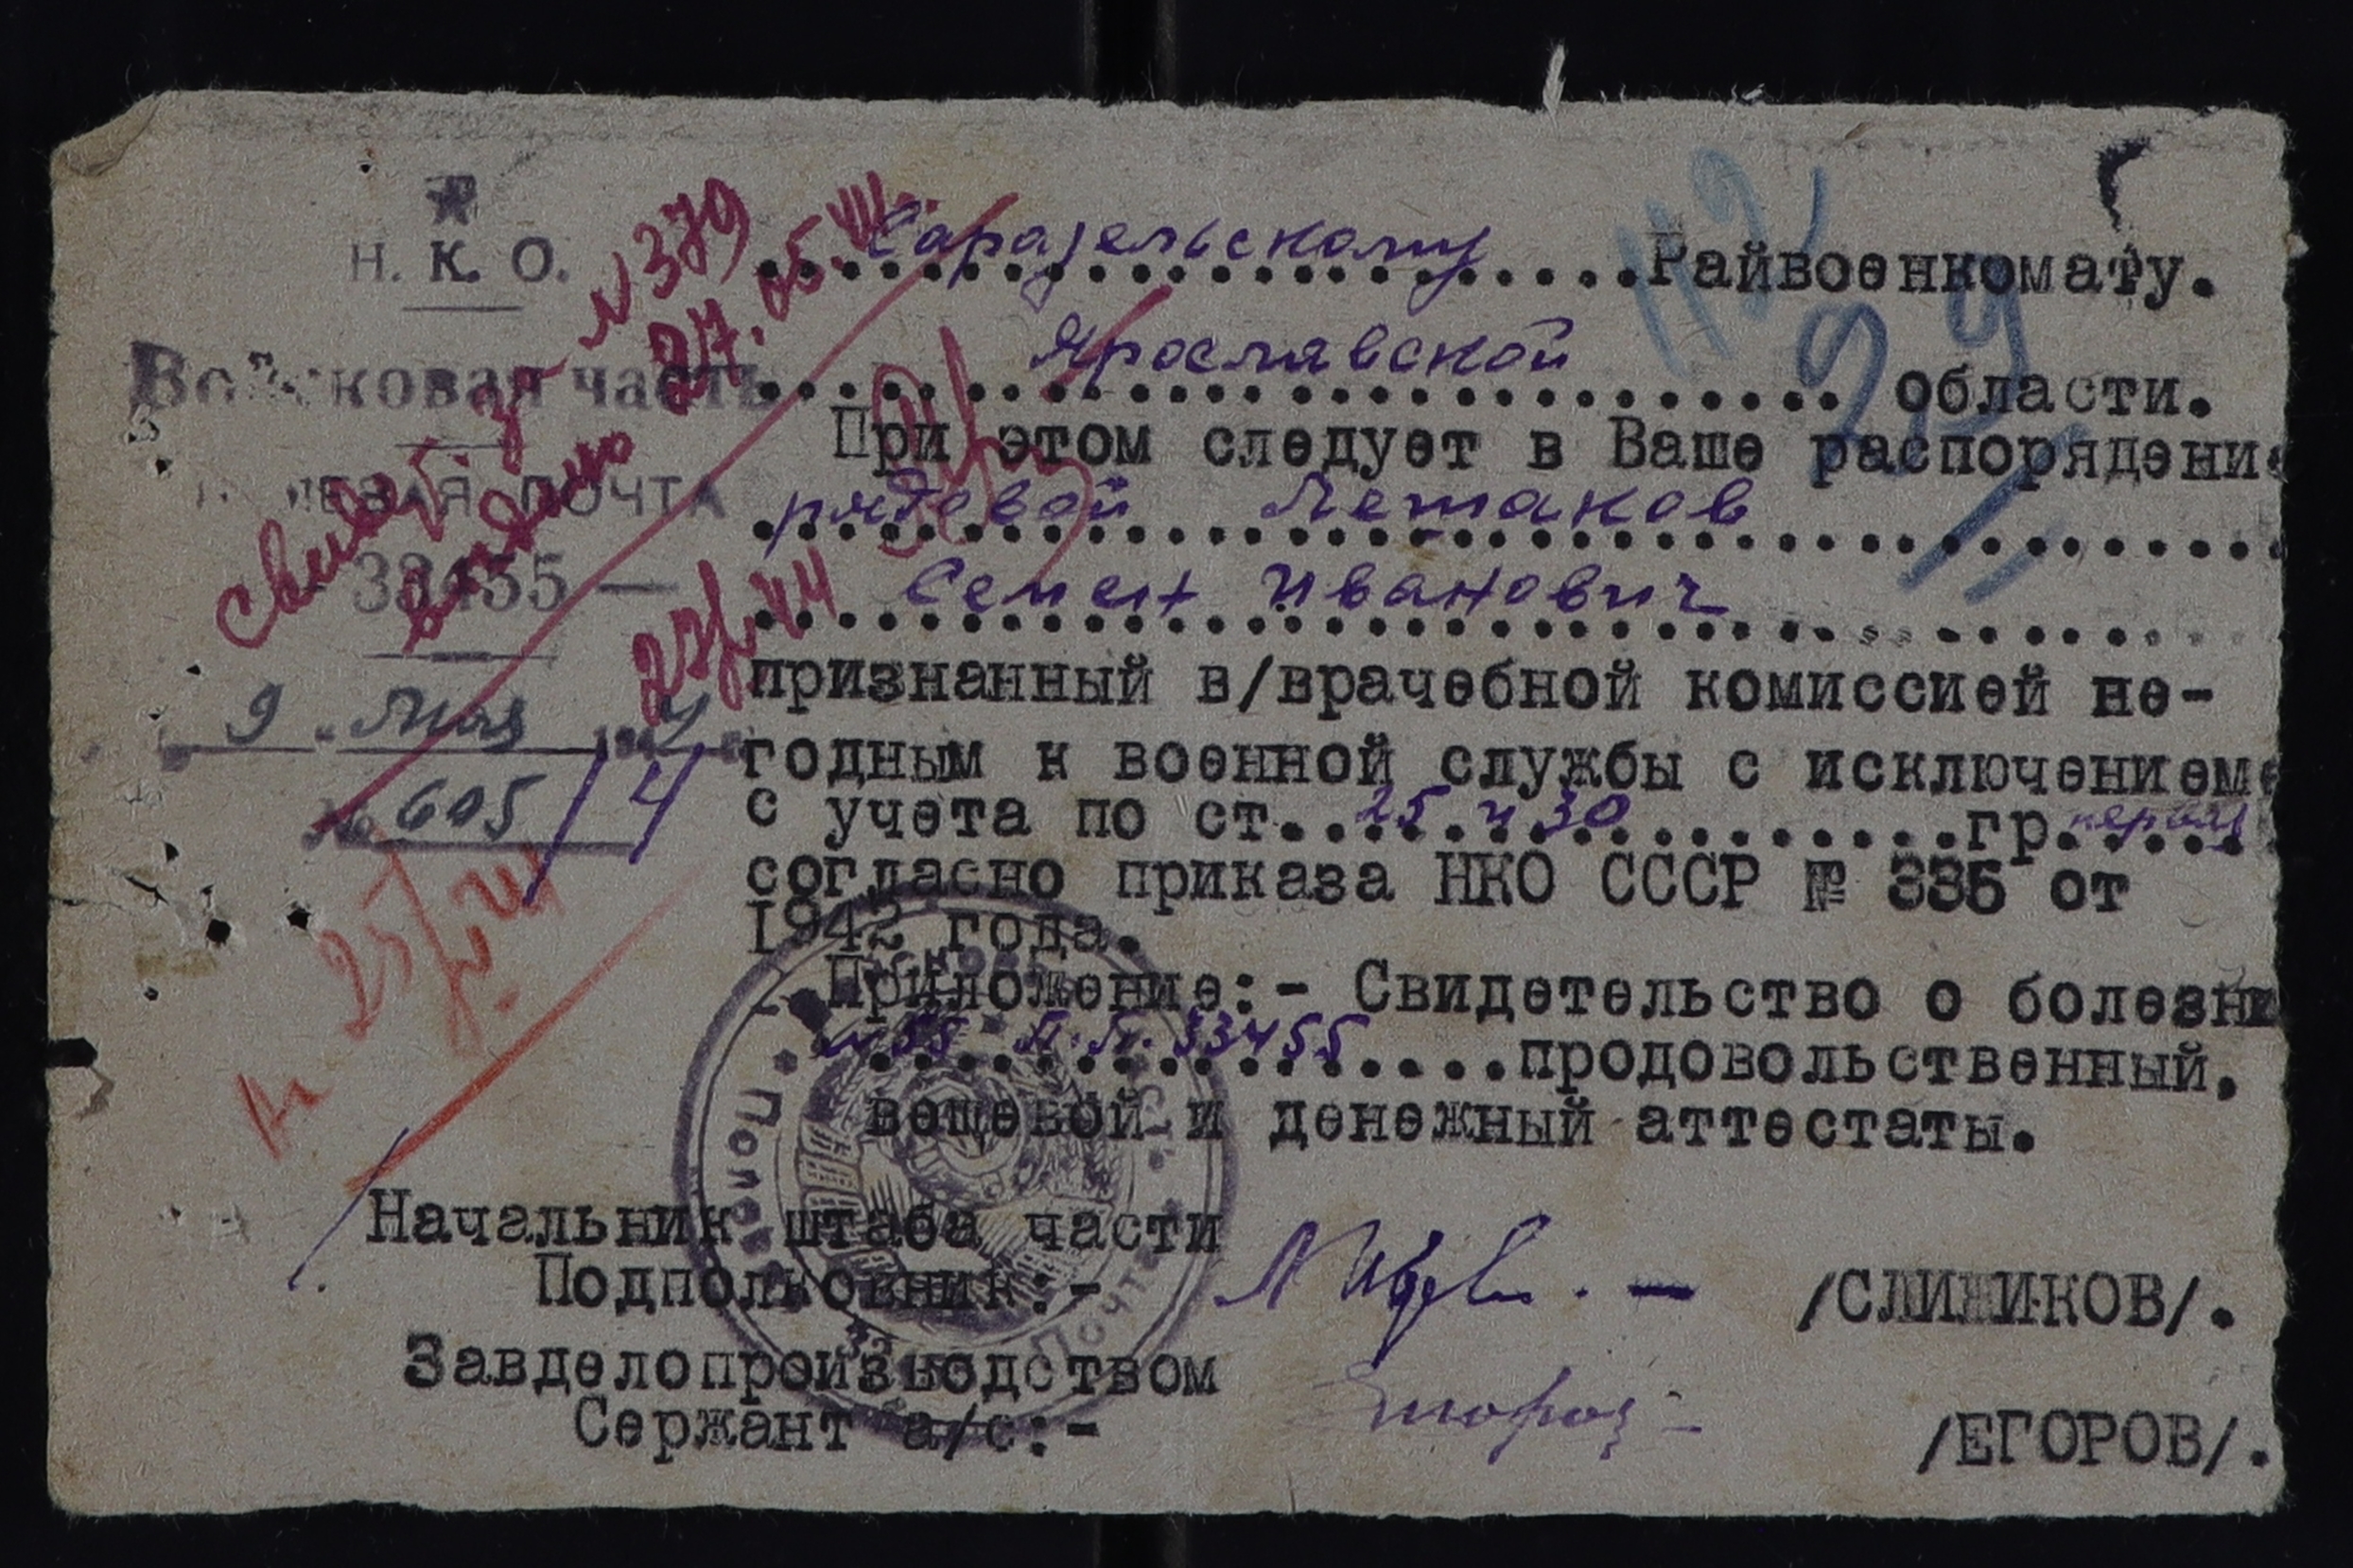 Н. К. О.
Войсковая часть
ПОЛЕВАЯ ПОЧТА
33455 —
9 Мая 44
№ 605/4
№ 379
выдано 27.05.
27/V 44
112
29
Райвоенкомату.
Ярославской области.
При этом следует в Ваше распоряжени
рядовой
Семен Иванович
признанный в/врачебной комиссией не-
годным к военной службы с исключением
с учета по ст. 25 и 30 гр. первая
согласно приказа НКО СССР № 336 от
1942 года.
Приложение:- Свидетельство о болезни
№ 55 П.П. 33455 продовольственный,
вещевой и денежный аттестаты.
Начальник штаба части
Подполковник:- /СЛИНИКОВ/.
Завделопроизводством
Сержант а/с:- /ЕГОРОВ/.
Полевая Почта